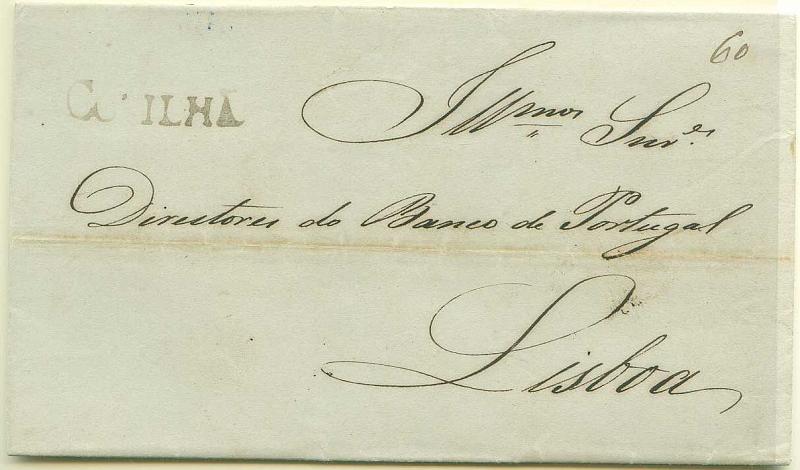 60
Illmos Snres
Directores do Banco de Portugal
Lisboa